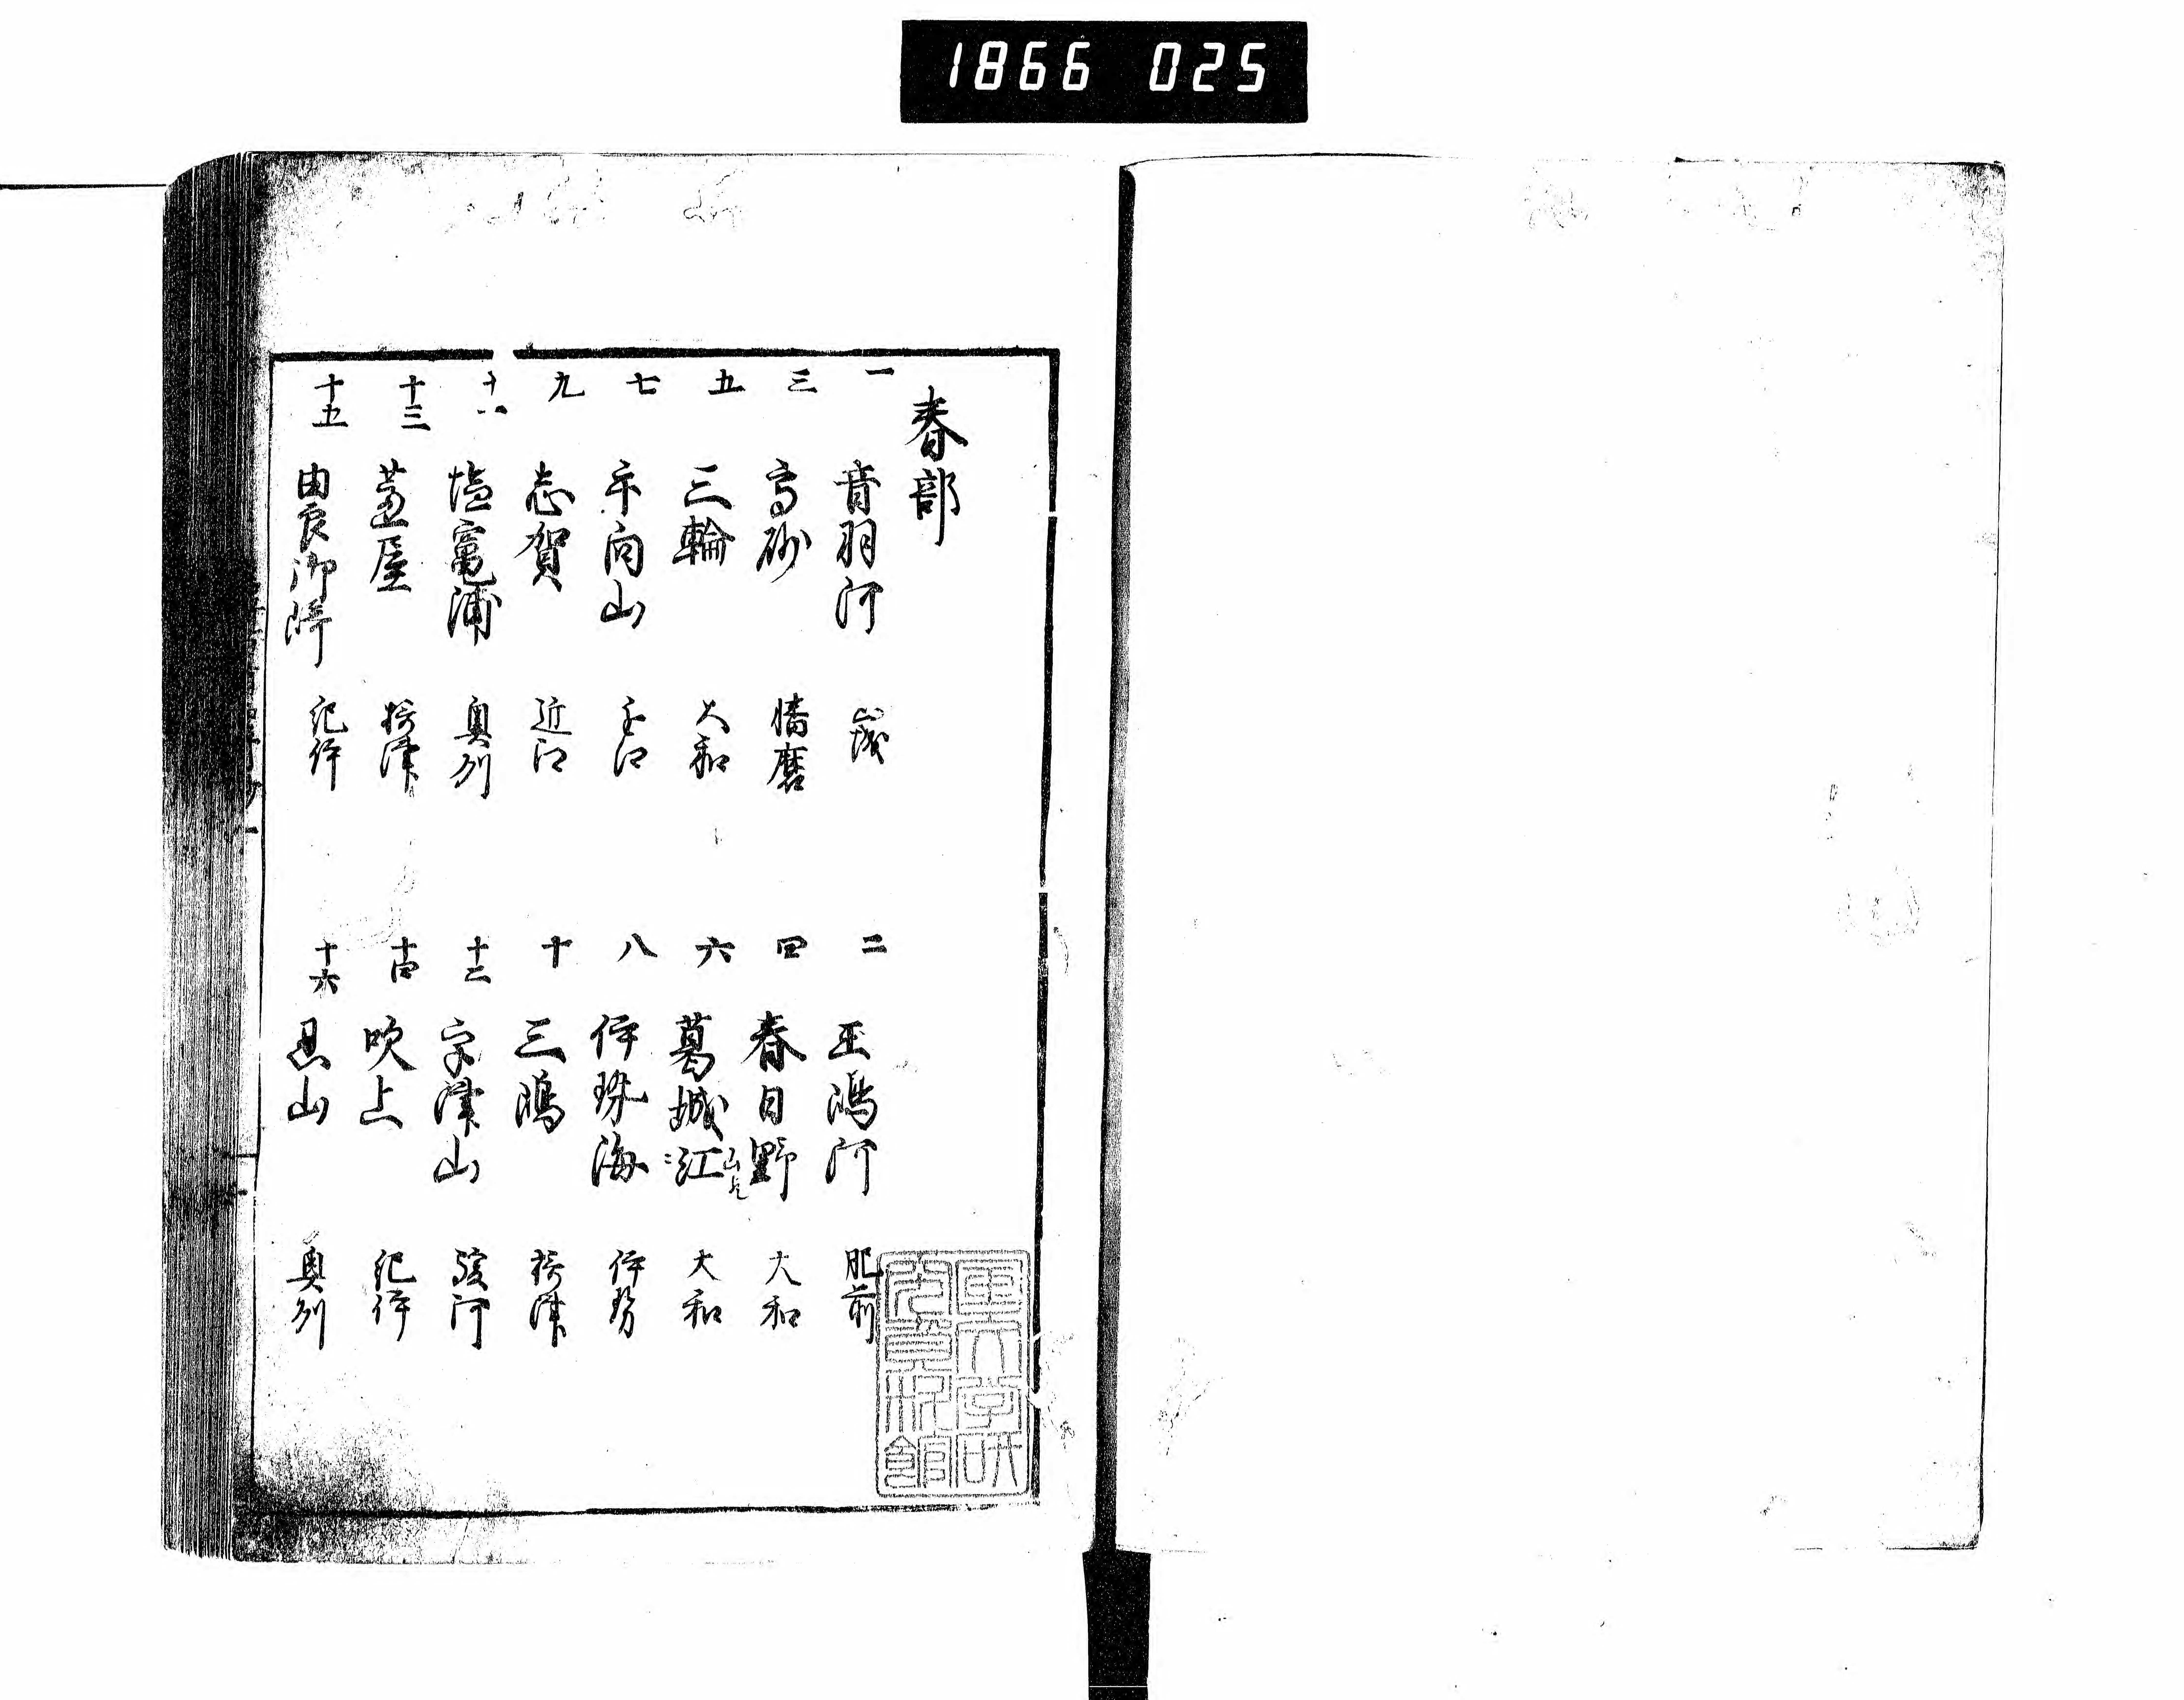 1866 025
春部
一 音羽河 山城
二 玉嶋河 肥前
三 高砂 播磨
四 春日野 大和
五 三輪 大和
六 葛城 江 大和
七 向山
八 伊珠海 伊勢
九 志賀 近江
十 三嶋 摂津
十一 塩竈浦 奥州
十二 宇津山 駿河
十三 芦屋 摂津
十四 吹上 紀伊
十五 由良御崎 紀伊
十六 忍山 奥州